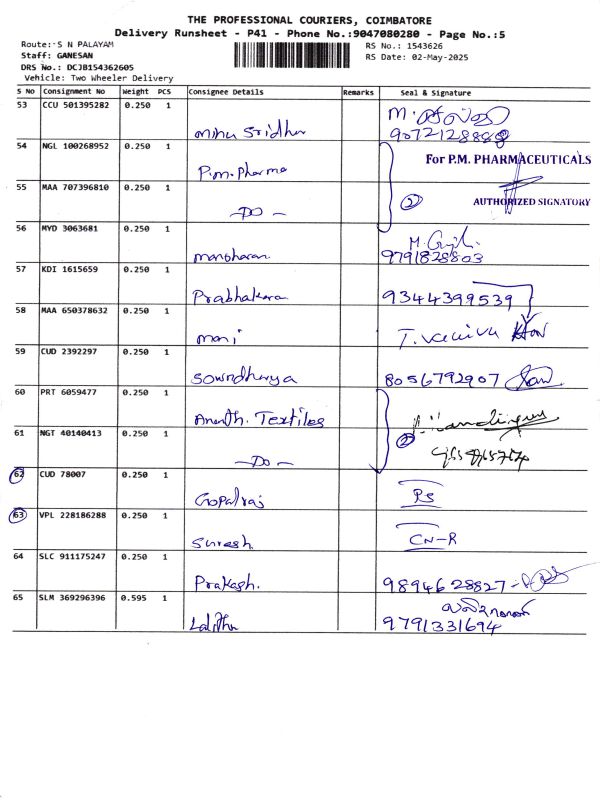 THE PROFESSIONAL COURIERS, COIMBATORE
Delivery Runsheet - P41 - Phone No.:9047080280 - Page No.:5
Route: S N PALAYAM
RS No.: 1543626
Staff: GANESAN
RS Date: 02-May-2025
DRS No.: DCJB154362605
Vehicle: Two Wheeler Delivery
S No Consignment No Weight PCS Consignee Details Remarks Seal & Signature
53 CCU 501395282 0.250 1
Minu Sridhar 9072128888
54 NGL 100268952 0.250 1
P.m. Pharma For P.M. PHARMACEUTICALS
55 MAA 707396810 0.250 1
-Do- 2 AUTHORIZED SIGNATORY
56 MYD 3063681 0.250 1
manoharan 9791828803
57 KDI 1615659 0.250 1
Prabhakara 9344399539
58 MAA 650378632 0.250 1
mani
59 CUD 2392297 0.250 1
Sowndharya 8056792907
60 PRT 6059477 0.250 1
Ananth. Textiles
61 NGT 40140413 0.250 1
-Do- 2
62 CUD 78007 0.250 1
Gopalraj PS
63 VPL 228186288 0.250 1
Suresh CN-R
64 SLC 911175247 0.250 1
Prakash. 9894628827
65 SLM 369296396 0.595 1
Lalitha 9791331694